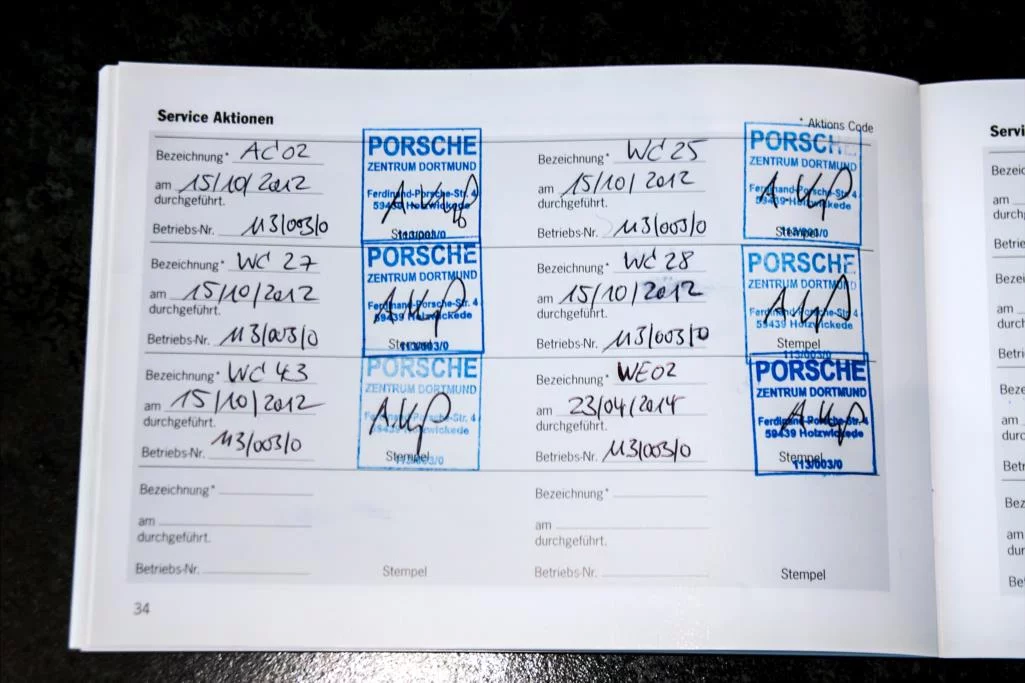 Service Aktionen
* Aktions Code
Bezeichnung* AC02
am 15/10/2012
durchgeführt.
Betriebs-Nr. 113/003/0
PORSCHE
ZENTRUM DORTMUND
Ferdinand-Porsche-Str. 4
59439 Holzwickede
Stempel
113/003/0
Bezeichnung* WC 25
am 15/10/2012
durchgeführt.
Betriebs-Nr. 113/003/0
PORSCHE
ZENTRUM DORTMUND
Ferdinand-Porsche-Str. 4
59439 Holzwickede
Stempel
113/003/0
Bezeichnung* WC 27
am 15/10/2012
durchgeführt.
Betriebs-Nr. 113/003/0
PORSCHE
ZENTRUM DORTMUND
Ferdinand-Porsche-Str. 4
59439 Holzwickede
Stempel
113/003/0
Bezeichnung* WC 28
am 15/10/2012
durchgeführt.
Betriebs-Nr. 113/003/0
PORSCHE
ZENTRUM DORTMUND
Ferdinand-Porsche-Str. 4
59439 Holzwickede
Stempel
113/003/0
Bezeichnung* WC 43
am 15/10/2012
durchgeführt.
Betriebs-Nr. 113/003/0
PORSCHE
ZENTRUM DORTMUND
Ferdinand-Porsche-Str. 4
59439 Holzwickede
Stempel
113/003/0
Bezeichnung* WE02
am 23/04/2014
durchgeführt.
Betriebs-Nr. 113/003/0
PORSCHE
ZENTRUM DORTMUND
Ferdinand-Porsche-Str. 4
59439 Holzwickede
Stempel
113/003/0
Bezeichnung*
am
durchgeführt.
Betriebs-Nr.
Stempel
Bezeichnung*
am
durchgeführt.
Betriebs-Nr.
Stempel
34